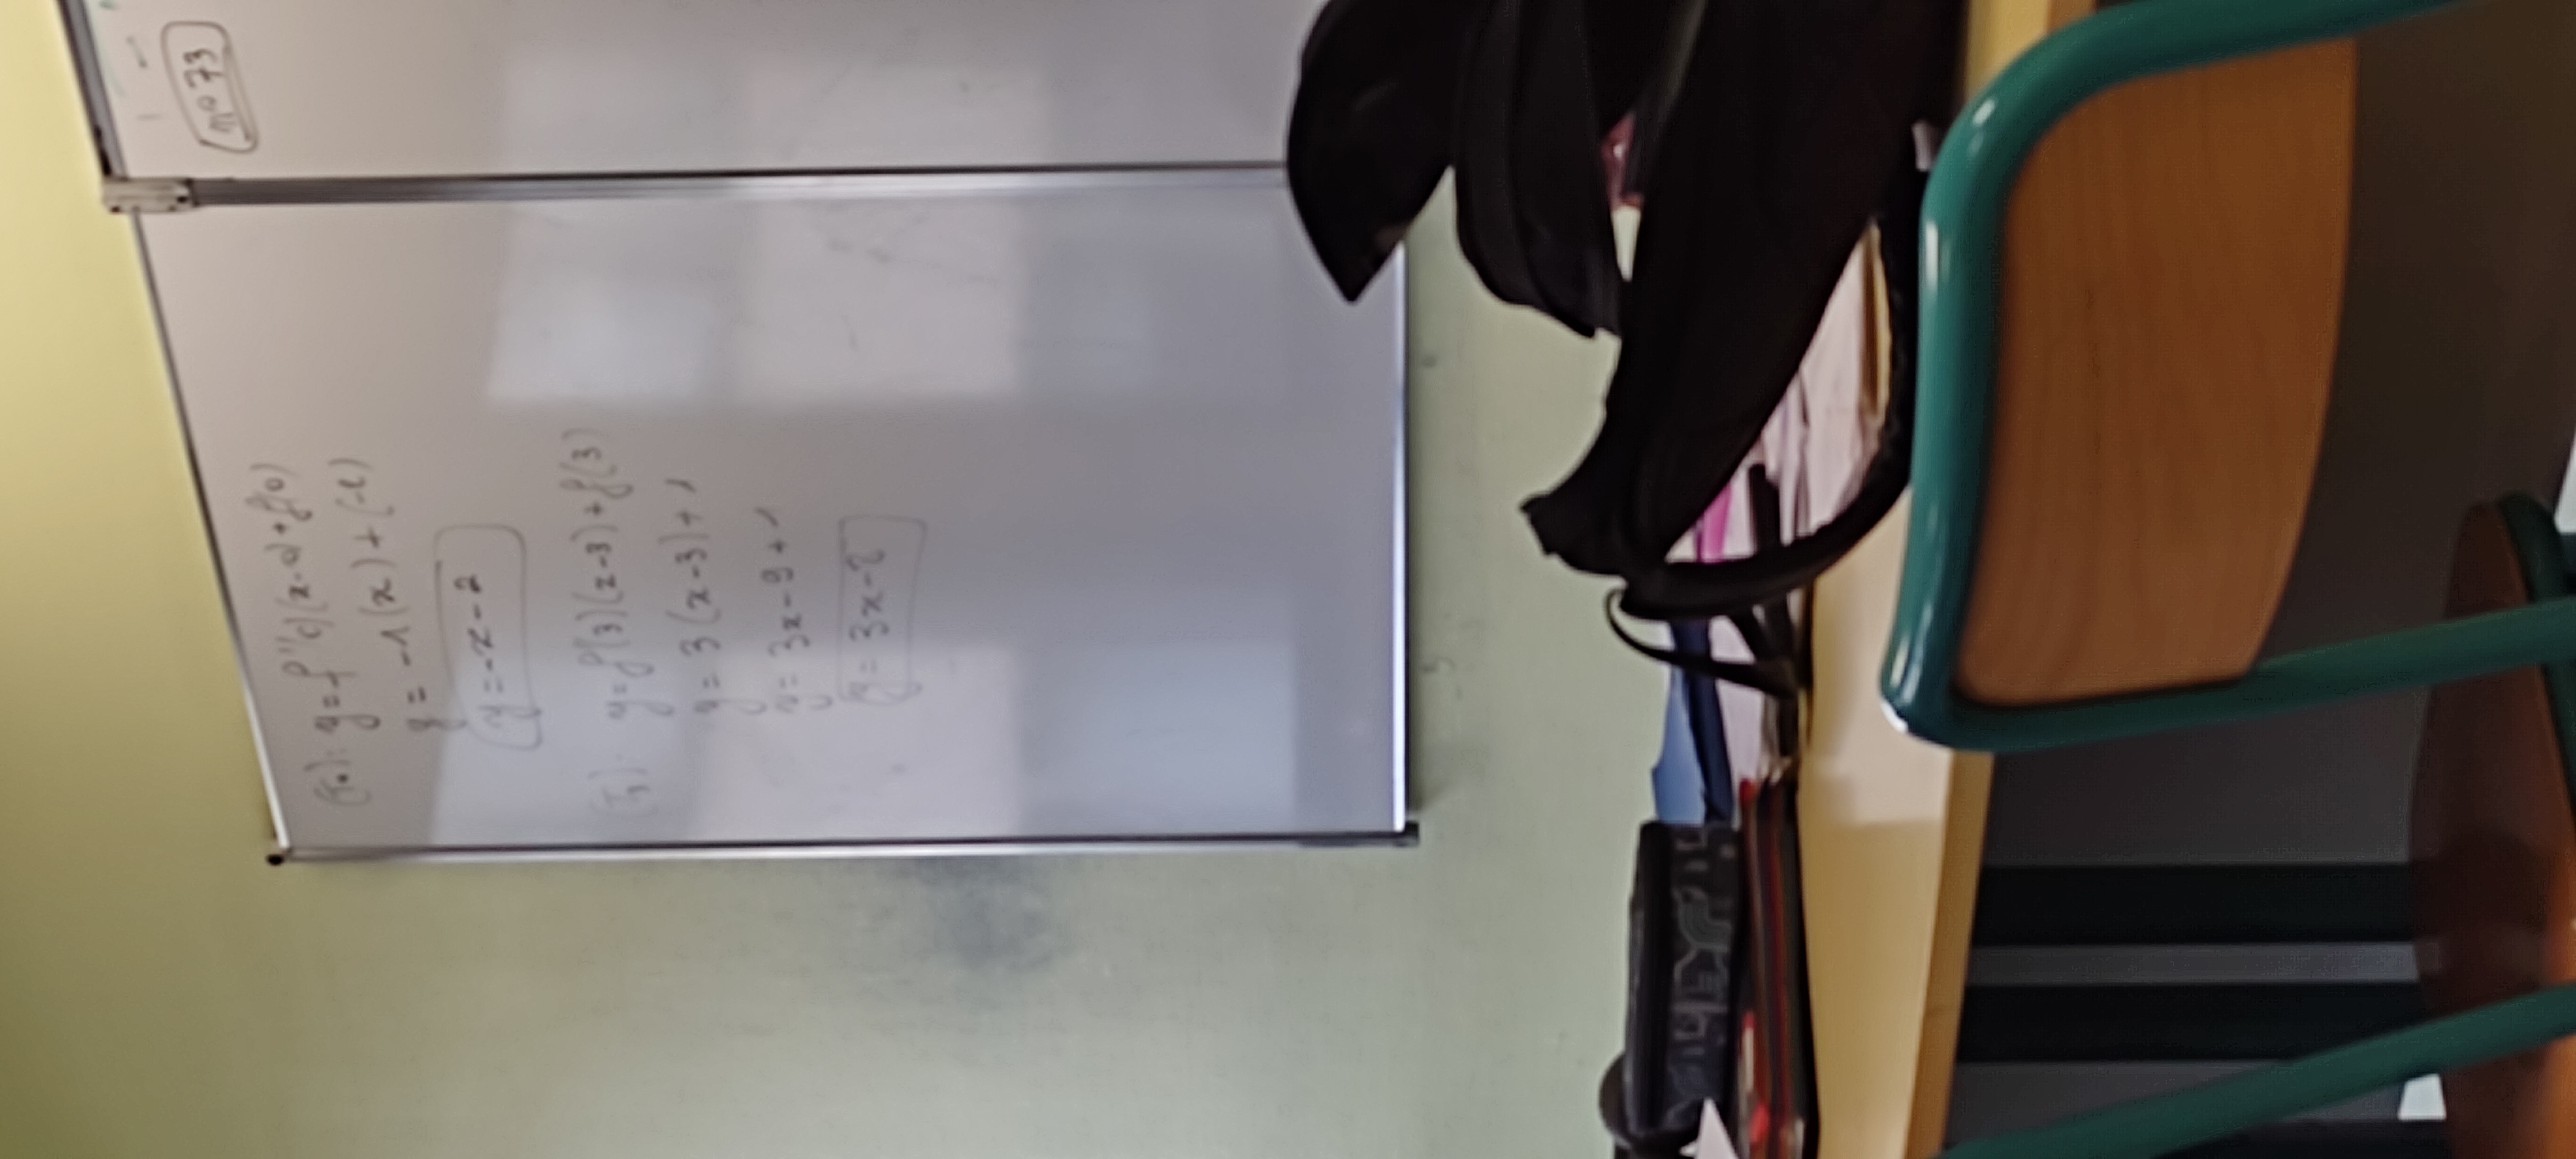 (T₀): y = f'(0)(x-0) + f(0)
y = -1(x) + (-2)
y = -x - 2
(T₃): y = f'(3)(x-3) + f(3)
y = 3(x-3) + 1
y = 3x - 9 + 1
y = 3x - 8
n° 73